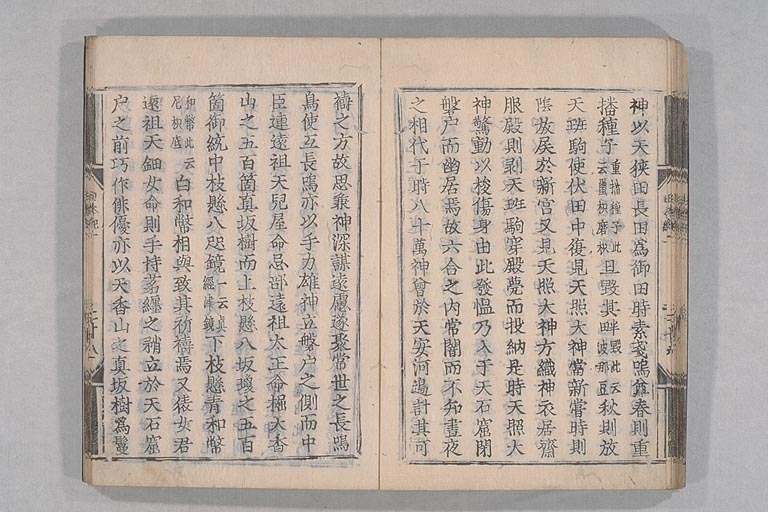 神以天狭田長田爲御田時素戔嗚尊春則重
播種子重播種子此云璽枳磨枳且毀其畔毀此云波那豆秋則放
天班駒使伏田中復見天照大神當新嘗時則
陰放屎於新宮又見天照大神方織神衣居齋
服殿則剥天班駒穿殿甍而投納是時天照大
神驚動以梭傷身由此發慍乃入于天石窟閉
磐戸而幽居焉故六合之内常闇而不知晝夜
之相代于時八十萬神會於天安河邊計其可
禱之方故思兼神深謀遠慮遂聚常世之長鳴
鳥使互長鳴亦以手力雄神立磐戸之側而中
臣連遠祖天兒屋命忌部遠祖太玉命掘天香
山之五百箇真坂樹而上枝懸八坂瓊之五百
箇御統中枝懸八咫鏡一云真經津鏡下枝懸青和幣
和幣此云尼枳底白和幣相與致其祈禱焉又猿女君
遠祖天鈿女命則手持茅纏之矟立於天石窟
戸之前巧作俳優亦以天香山之真坂樹爲鬘